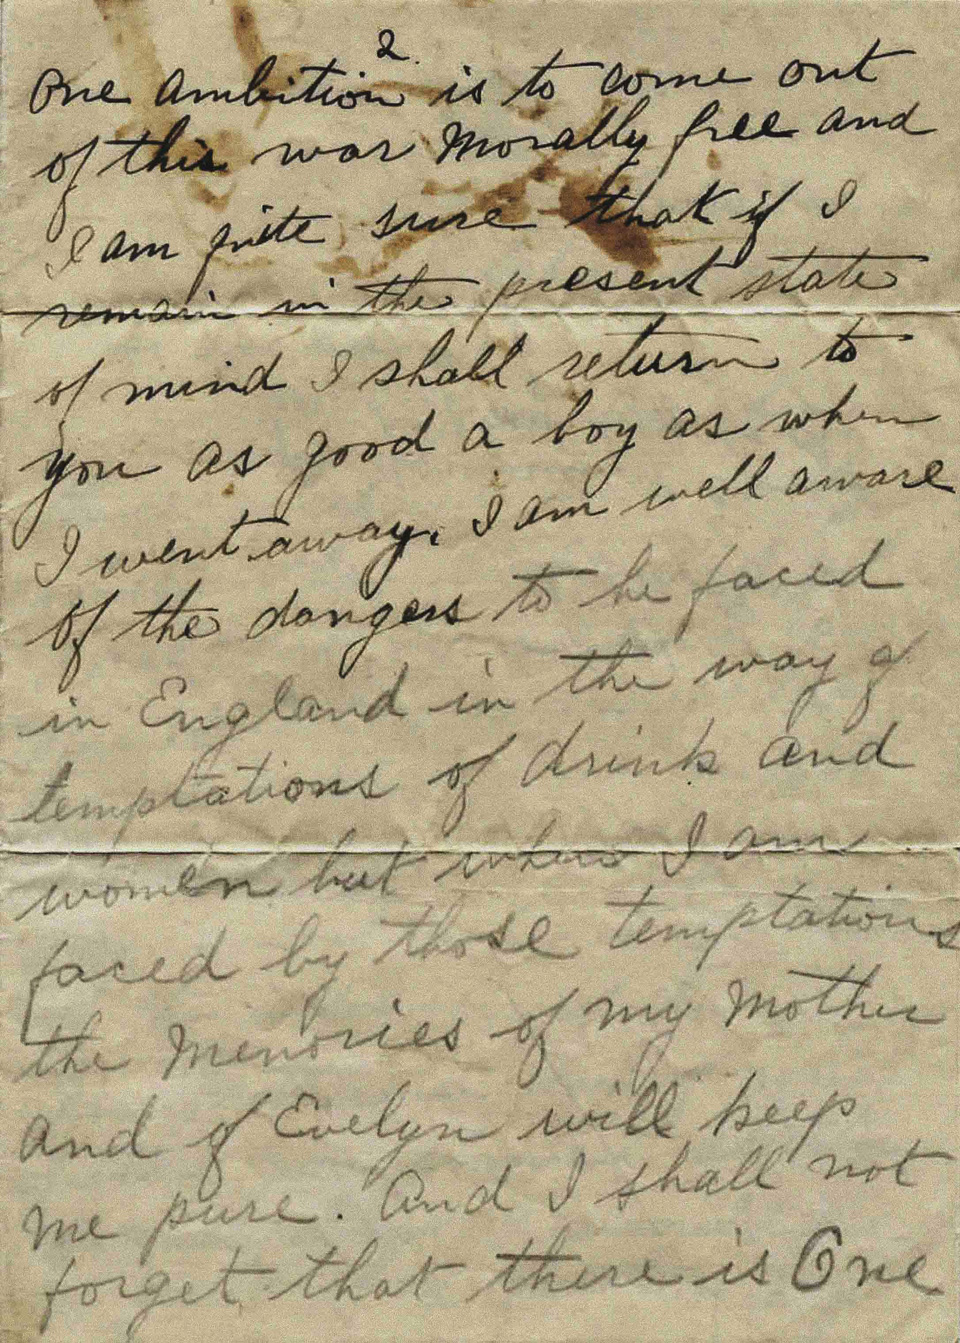 2
One ambition is to come out
of this war Morally free and
I am quite sure that if I
remain in the present state
of mind I shall return to
you as good a boy as when
I went away. I am well aware
of the dangers to be faced
in England in the way of
temptations of drink and
women but when I am
faced by those temptations
the Memories of my Mother
and of Evelyn will keep
me pure. And I shall not
forget that there is One